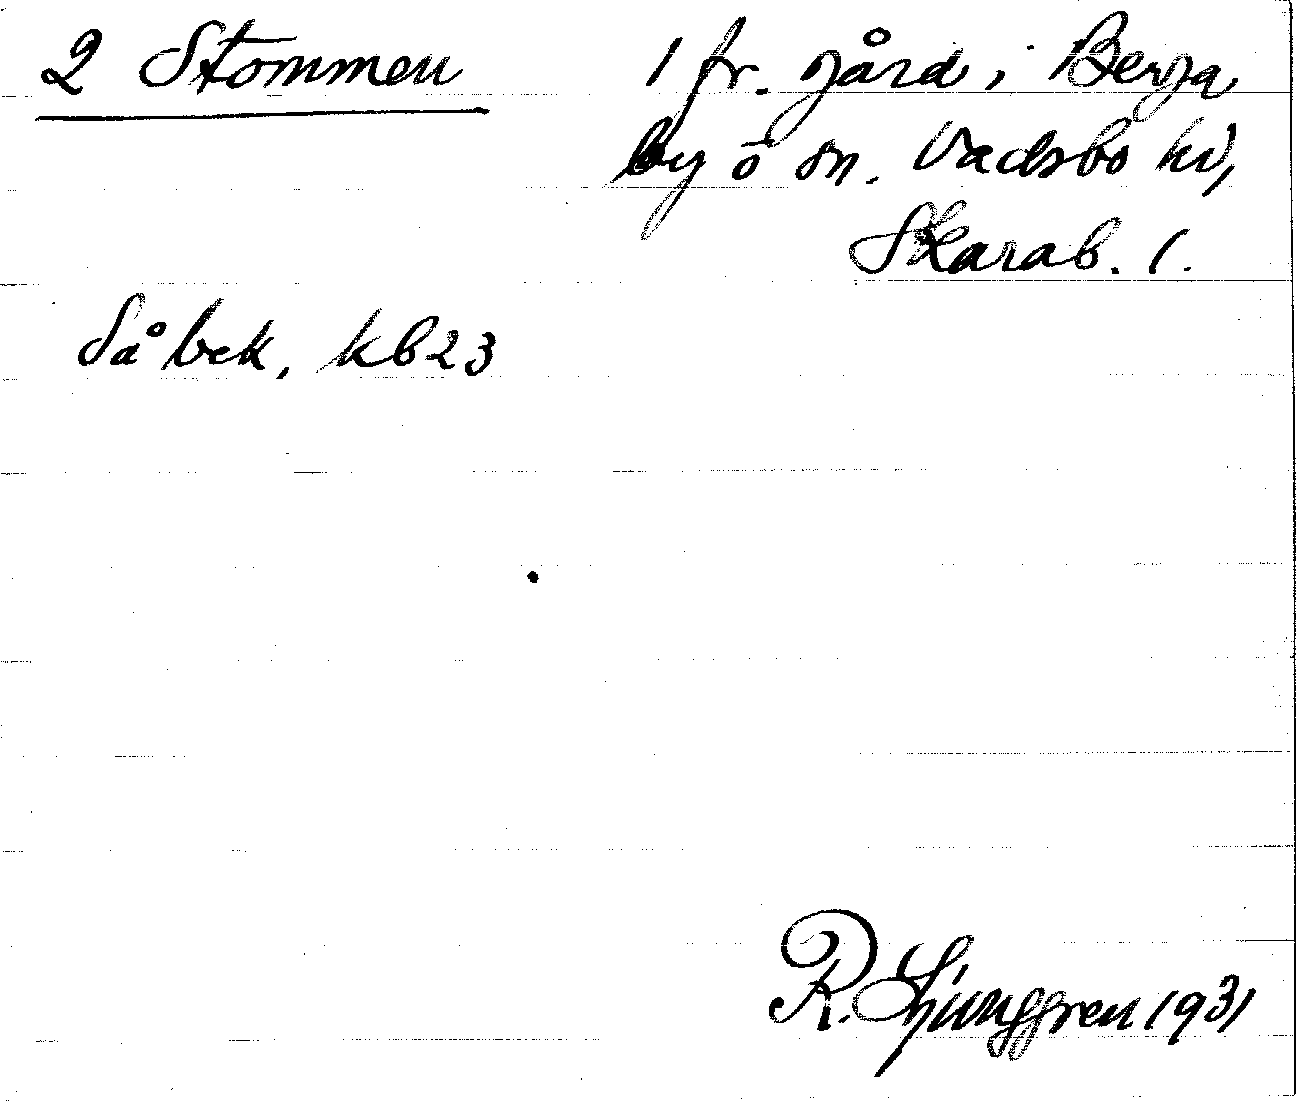 2 Stommen
1 fr. gård i Berga
by o sn. Vadsbo hd,
Skarab. l.
Så bek, kb 23
R. Ljunggren 1931